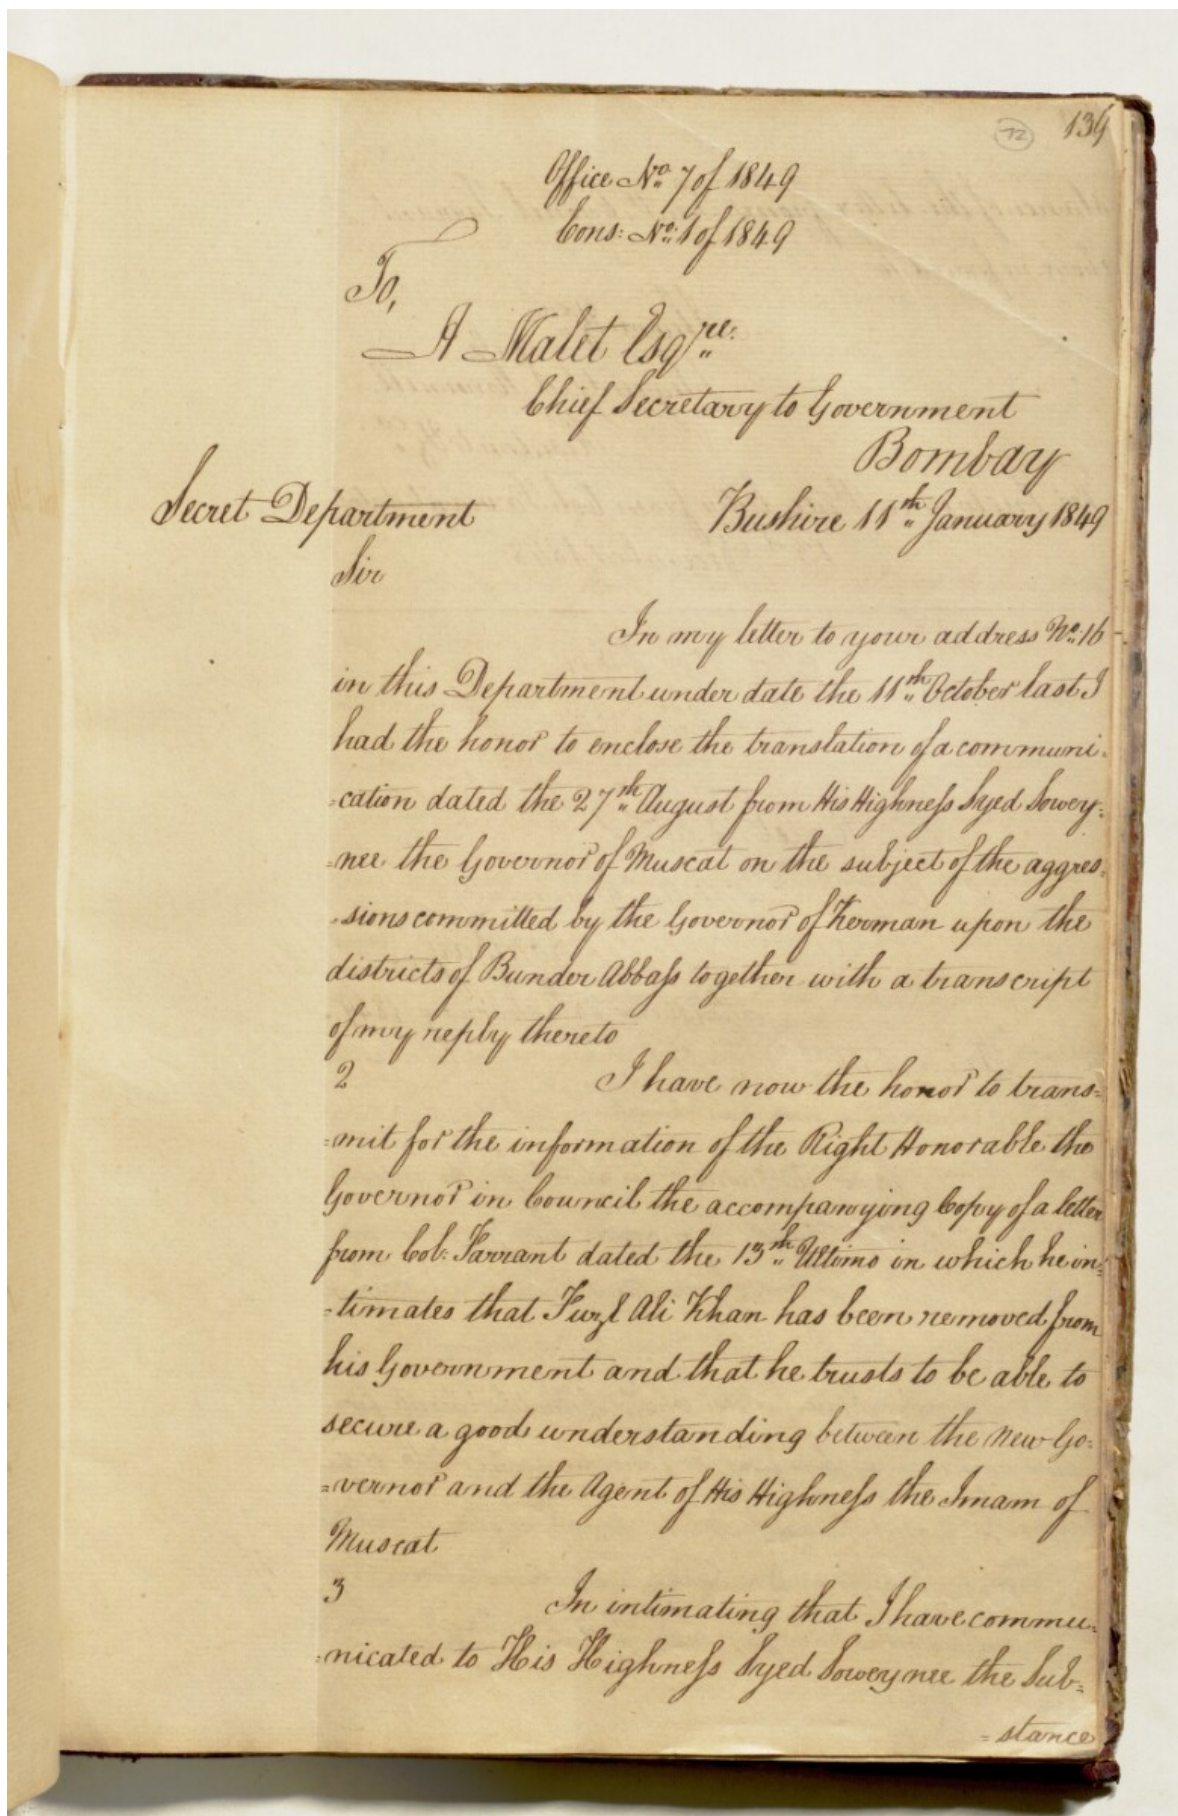 139
12
Office No. 7 of 1849
Cons: No. 1 of 1849
To,
A Malet Esqre.
Chief Secretary to Government
Bombay
Secret Department Bushire 11th January 1849
Sir
In my letter to your address No. 16
in this Department under date the 11th October last I
had the honor to enclose the translation of a communi-
-cation dated the 27th August from His Highness Syed Sowey-
-nee the Governor of Muscat on the subject of the aggres-
-sions committed by the Governor of Kerman upon the
districts of Bunder Abbass together with a transcript
of my reply thereto
2 I have now the honor to trans=
=mit for the information of the Right Honorable the
Governor in Council the accompanying Copy of a letter
from Col: Farrant dated the 13th Ultimo in which he in=
-timates that Fuzl Ali Khan has been removed from
his Government and that he trusts to be able to
secure a good understanding between the new Go=
=vernor and the Agent of His Highness the Imam of
Muscat
3 In intimating that I have commu=
=nicated to His Highness Syed Soweynee the Sub=
=stance